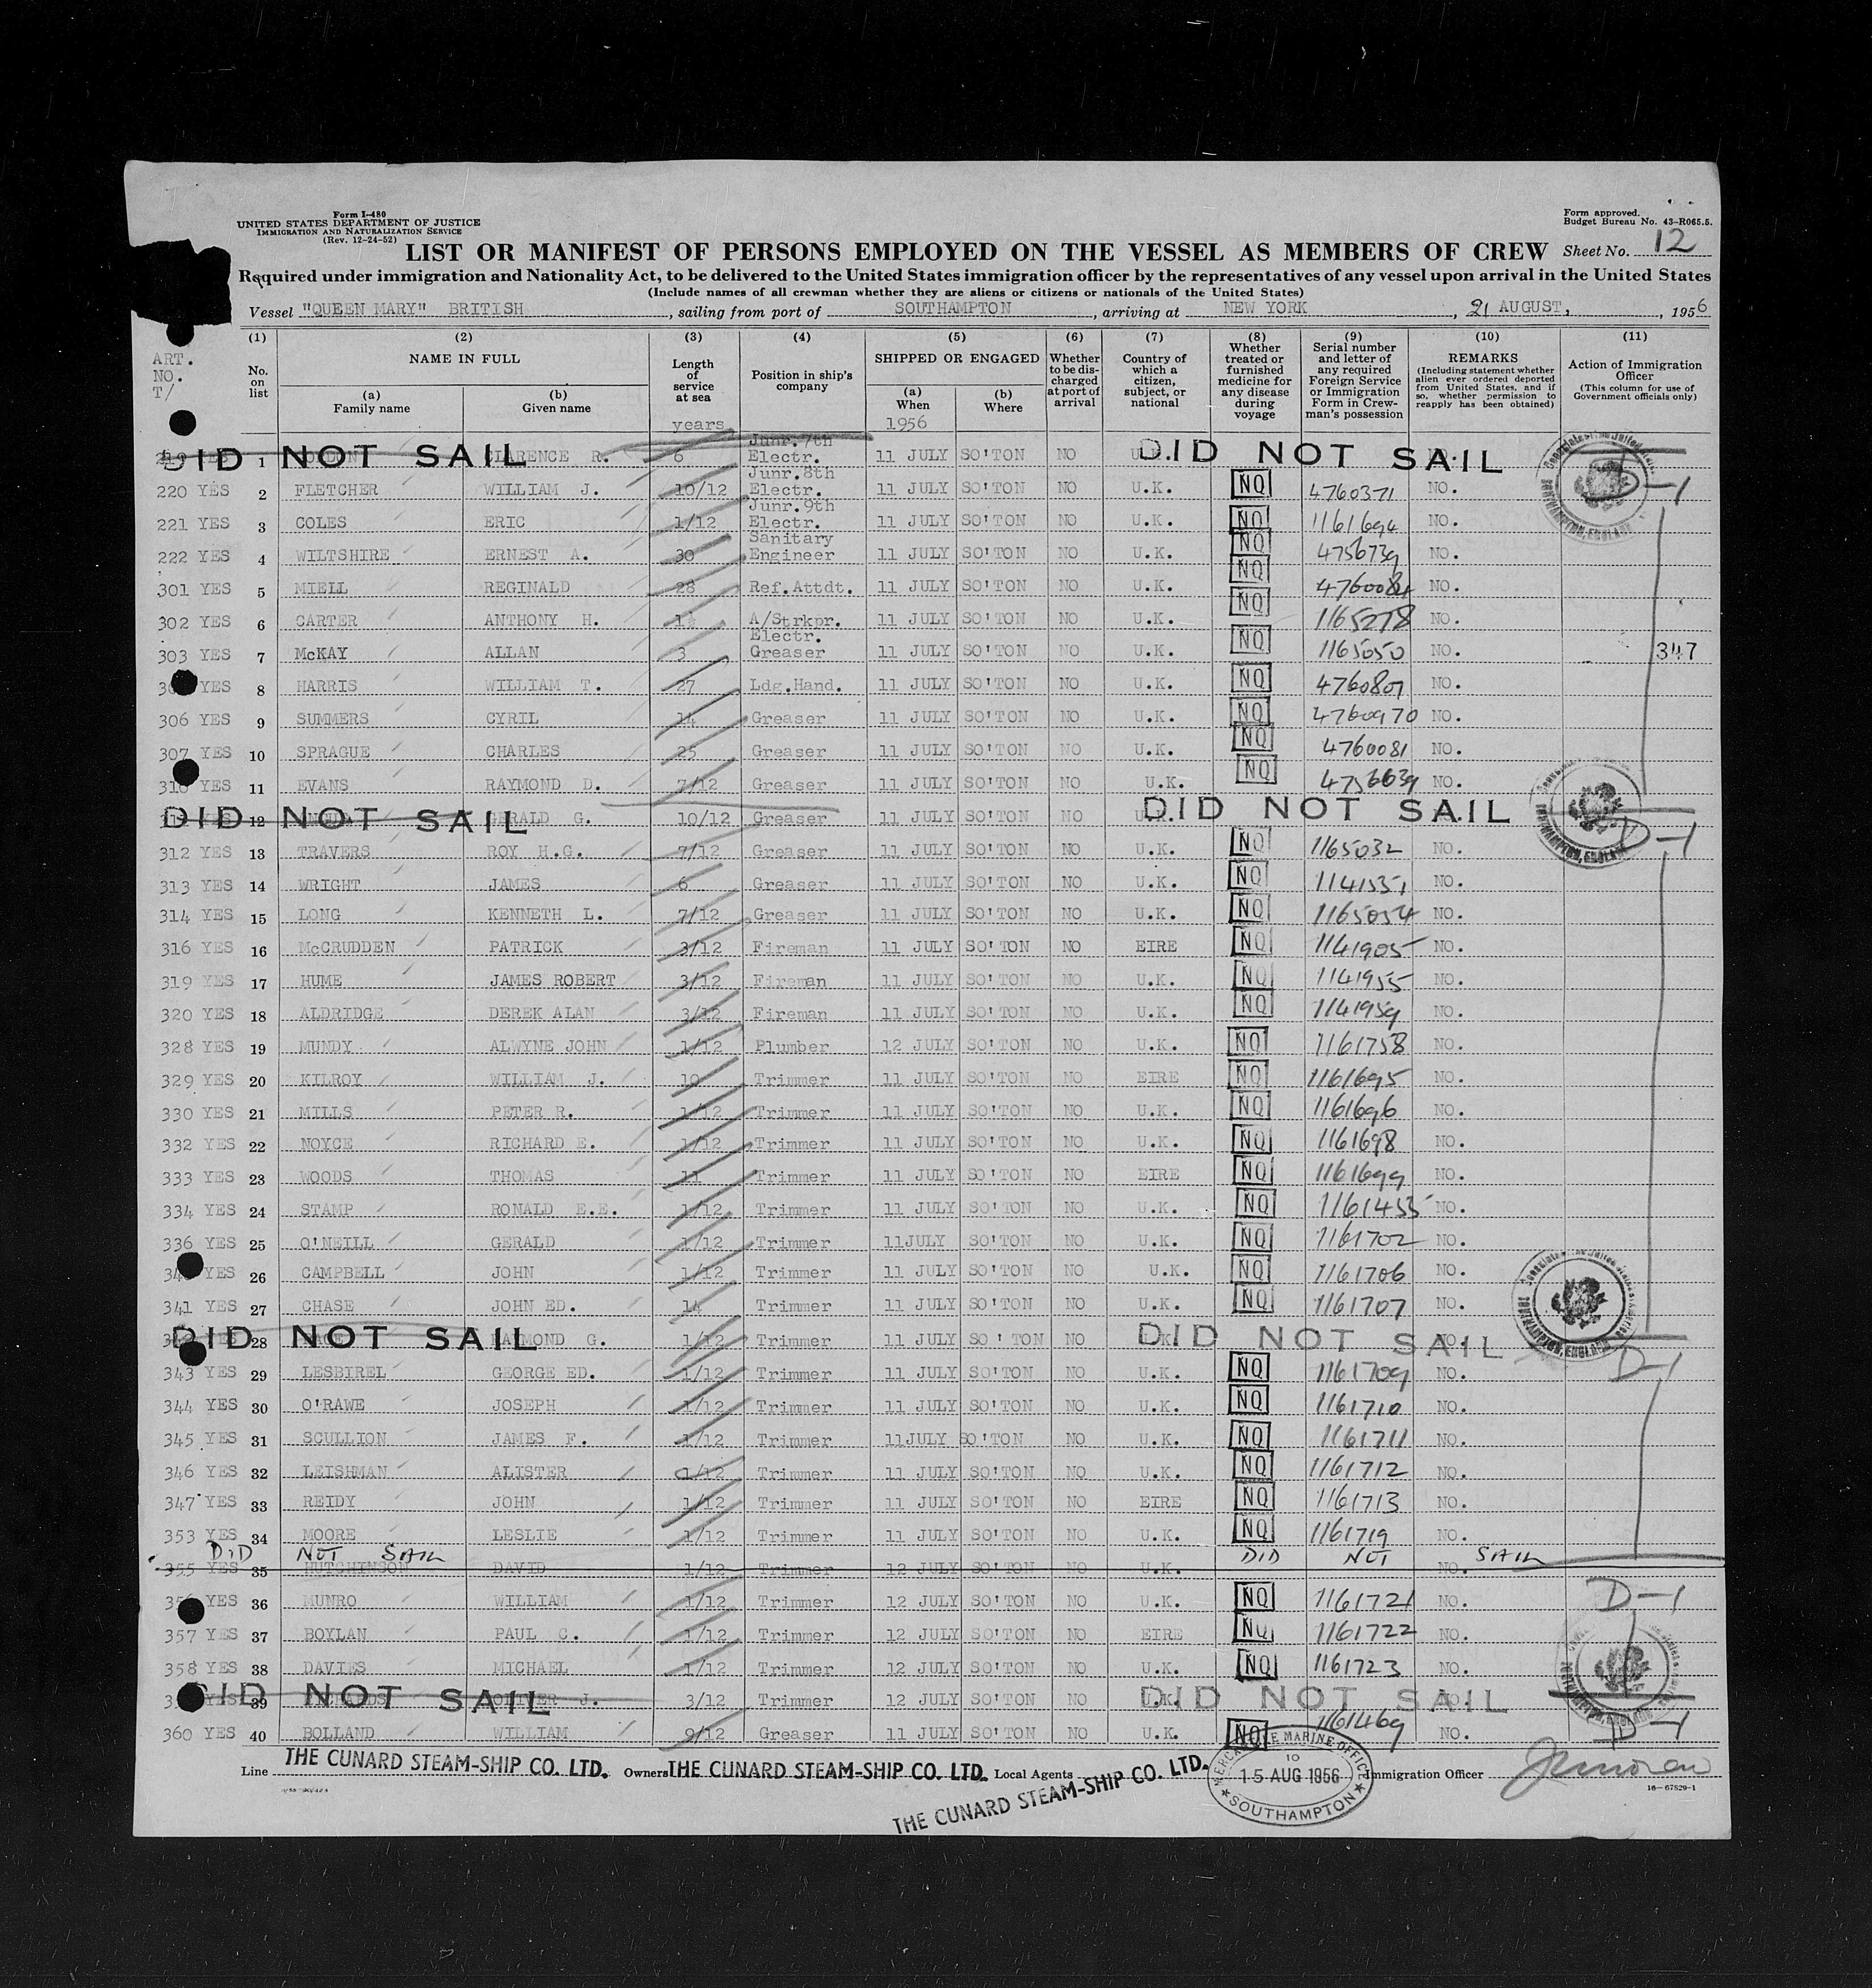 Form I-480
UNITED STATES DEPARTMENT OF JUSTICE
IMMIGRATION AND NATURALIZATION SERVICE
(Rev. 12-24-52)
Form approved.
Budget Bureau No. 43-R065.5.
LIST OR MANIFEST OF PERSONS EMPLOYED ON THE VESSEL AS MEMBERS OF CREW Sheet No. 12
Required under immigration and Nationality Act, to be delivered to the United States immigration officer by the representatives of any vessel upon arrival in the United States
(Include names of all crewman whether they are aliens or citizens or nationals of the United States)
Vessel "QUEEN MARY" BRITISH, sailing from port of SOUTHAMPTON, arriving at NEW YORK, 21 AUGUST, 1956
ART. NO. T/
(1) No. on list
(2) NAME IN FULL
(a) Family name
(b) Given name
(3) Length of service at sea
years
(4) Position in ship's company
(5) SHIPPED OR ENGAGED
(a) When
1956
(b) Where
(6) Whether to be discharged at port of arrival
(7) Country of which a citizen, subject, or national
(8) Whether treated or furnished medicine for any disease during voyage
(9) Serial number and letter of any required Foreign Service or Immigration Form in Crewman's possession
(10) REMARKS (Including statement whether alien ever ordered deported from United States, and if so, whether permission to reapply has been obtained)
(11) Action of Immigration Officer (This column for use of Government officials only)
DID NOT SAIL 1 CLARENCE R. 6 Junr. 7th Electr. 11 JULY SO'TON NO DID NOT SAIL
220 YES 2 FLETCHER WILLIAM J. 10/12 Junr. 8th Electr. 11 JULY SO'TON NO U.K. NQ 4760371 NO. D-1
221 YES 3 COLES ERIC 1/12 Junr. 9th Electr. 11 JULY SO'TON NO U.K. NQ 1161694 NO.
222 YES 4 WILTSHIRE ERNEST A. 30 Sanitary Engineer 11 JULY SO'TON NO U.K. NQ 4756739 NO.
301 YES 5 MIELL REGINALD 28 Ref.Attdt. 11 JULY SO'TON NO U.K. NQ 4760084 NO.
302 YES 6 CARTER ANTHONY H. A/Strkpr. 11 JULY SO'TON NO U.K. NQ 1165278 NO.
303 YES 7 McKAY ALLAN 3 Electr. Greaser 11 JULY SO'TON NO U.K. NQ 1165050 NO. 347
YES 8 HARRIS WILLIAM T. 27 Ldg.Hand. 11 JULY SO'TON NO U.K. NQ 4760807 NO.
306 YES 9 SUMMERS CYRIL 14 Greaser 11 JULY SO'TON NO U.K. NQ 4760970 NO.
307 YES 10 SPRAGUE CHARLES 25 Greaser 11 JULY SO'TON NO U.K. NQ 4760081 NO.
310 YES 11 EVANS RAYMOND D. 7/12 Greaser 11 JULY SO'TON NO U.K. NQ 4756639 NO.
DID NOT SAIL 12 GERALD G. 10/12 Greaser 11 JULY SO'TON NO DID NOT SAIL
312 YES 13 TRAVERS ROY H.G. 7/12 Greaser 11 JULY SO'TON NO U.K. NQ 1165032 NO. D-1
313 YES 14 WRIGHT JAMES 6 Greaser 11 JULY SO'TON NO U.K. NQ 1141551 NO.
314 YES 15 LONG KENNETH L. 7/12 Greaser 11 JULY SO'TON NO U.K. NQ 1165054 NO.
316 YES 16 McCRUDDEN PATRICK 3/12 Fireman 11 JULY SO'TON NO EIRE NQ 1141905 NO.
319 YES 17 HUME JAMES ROBERT 3/12 Fireman 11 JULY SO'TON NO U.K. NQ 1141955 NO.
320 YES 18 ALDRIDGE DEREK ALAN 3/12 Fireman 11 JULY SO'TON NO U.K. NQ 1141959 NO.
328 YES 19 MUNDY ALWYNE JOHN 1/12 Plumber 12 JULY SO'TON NO U.K. NQ 1161758 NO.
329 YES 20 KILROY WILLIAM J. 10 Trimmer 11 JULY SO'TON NO EIRE NQ 1161695 NO.
330 YES 21 MILLS PETER R. 1/12 Trimmer 11 JULY SO'TON NO U.K. NQ 1161696 NO.
332 YES 22 NOYCE RICHARD E. 1/12 Trimmer 11 JULY SO'TON NO U.K. NQ 1161698 NO.
333 YES 23 WOODS THOMAS 11 Trimmer 11 JULY SO'TON NO EIRE NQ 1161699 NO.
334 YES 24 STAMP RONALD E.E. 1/12 Trimmer 11 JULY SO'TON NO U.K. NQ 1161455 NO.
336 YES 25 O'NEILL GERALD 1/12 Trimmer 11JULY SO'TON NO U.K. NQ 1161702 NO.
YES 26 CAMPBELL JOHN 1/12 Trimmer 11 JULY SO'TON NO U.K. NQ 1161706 NO.
341 YES 27 CHASE JOHN ED. 14 Trimmer 11 JULY SO'TON NO U.K. NQ 1161707 NO.
DID NOT SAIL 28 RAYMOND G. 1/12 Trimmer 11 JULY SO'TON NO DID NOT SAIL
343 YES 29 LESBIREL GEORGE ED. 1/12 Trimmer 11 JULY SO'TON NO U.K. NQ 1161709 NO. D-1
344 YES 30 O'RAWE JOSEPH 1/12 Trimmer 11 JULY SO'TON NO U.K. NQ 1161710 NO.
345 YES 31 SCULLION JAMES F. 1/12 Trimmer 11JULY SO'TON NO U.K. NQ 1161711 NO.
346 YES 32 LEISHMAN ALISTER 1/12 Trimmer 11 JULY SO'TON NO U.K. NQ 1161712 NO.
347 YES 33 REIDY JOHN 1/12 Trimmer 11 JULY SO'TON NO EIRE NQ 1161713 NO.
353 YES 34 MOORE LESLIE 1/12 Trimmer 11 JULY SO'TON NO U.K. NQ 1161719 NO.
DID NOT SAIL DID NOT SAIL
355 YES 35 HUTCHINSON DAVID 1/12 Trimmer 12 JULY SO'TON NO U.K. NO.
YES 36 MUNRO WILLIAM 1/12 Trimmer 12 JULY SO'TON NO U.K. NQ 1161721 NO. D-1
357 YES 37 BOYLAN PAUL C. 1/12 Trimmer 12 JULY SO'TON NO EIRE NQ 1161722 NO.
358 YES 38 DAVIES MICHAEL 1/12 Trimmer 12 JULY SO'TON NO U.K. NQ 1161723 NO.
DID NOT SAIL 39 J. 3/12 Trimmer 12 JULY SO'TON NO U.K. DID NOT SAIL
360 YES 40 BOLLAND WILLIAM 9/12 Greaser 11 JULY SO'TON NO U.K. NQ 1161469 NO. D-1
Line THE CUNARD STEAM-SHIP CO. LTD. Owners THE CUNARD STEAM-SHIP CO. LTD. Local Agents THE CUNARD STEAM-SHIP CO. LTD. Immigration Officer
MERCANTILE MARINE OFFICE
10
15 AUG 1956
SOUTHAMPTON
16-67529-1